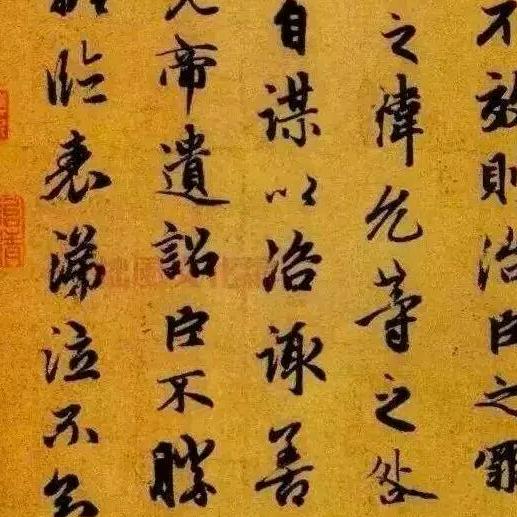 不效則治臣之罪
之禕允等之咎
自謀以咨諏善
先帝遺詔臣不勝
臨表涕泣不